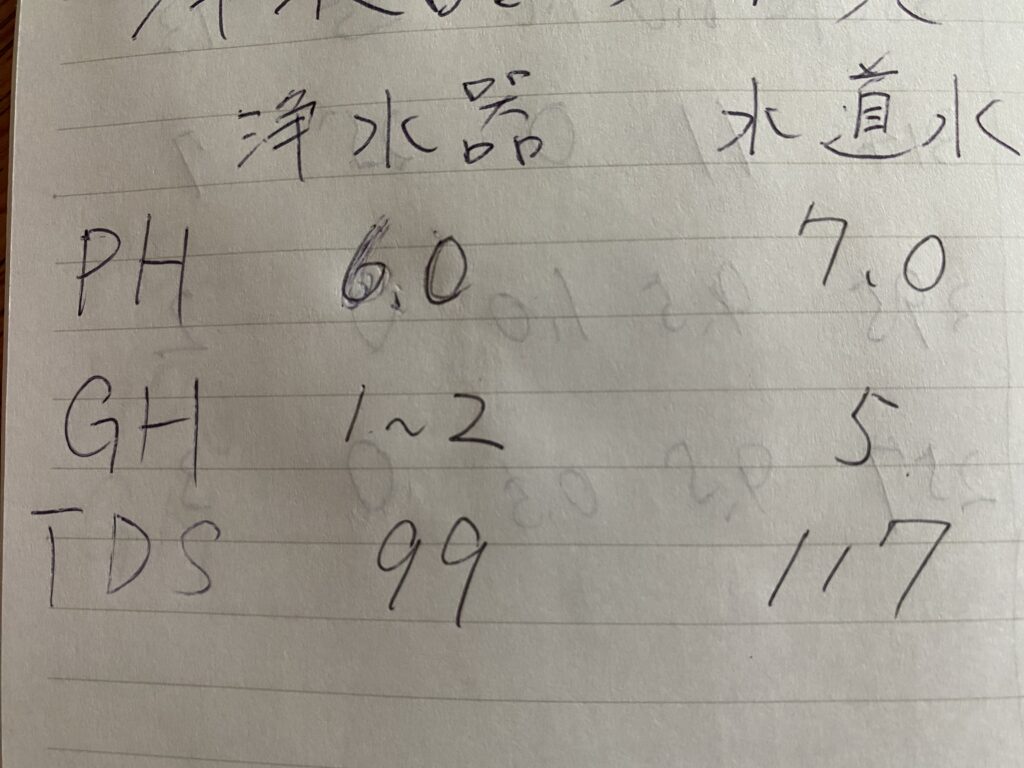 浄水器 水道水
PH 6.0 7.0
GH 1~2 5
TDS 99 117